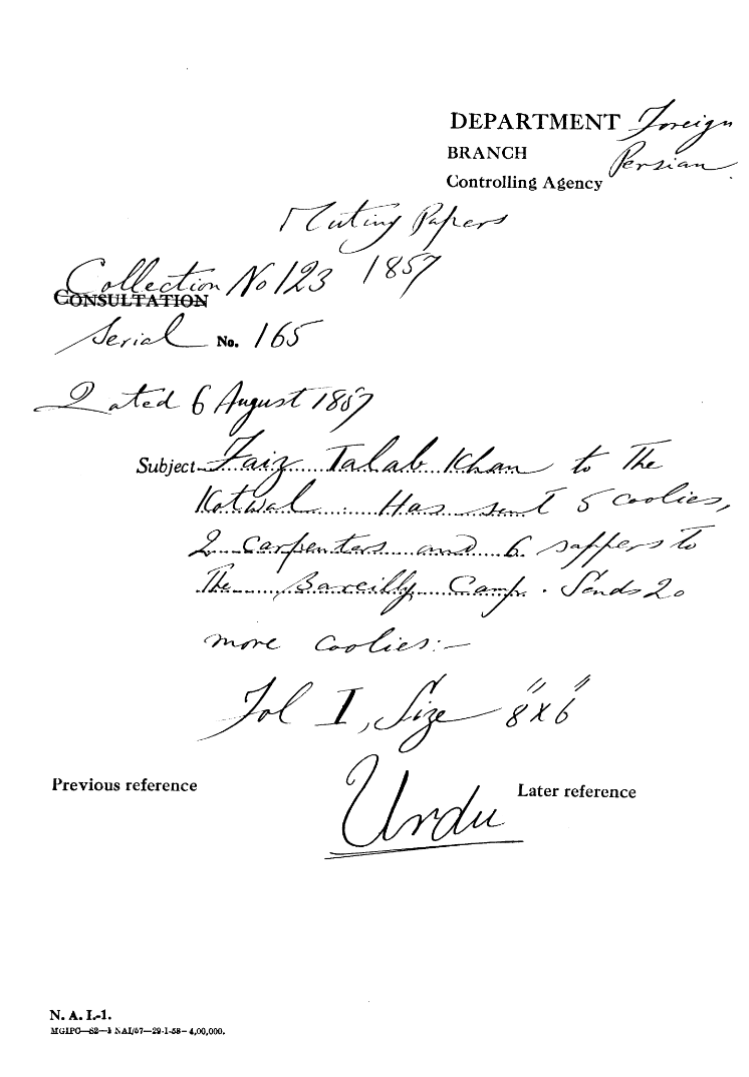 DEPARTMENT Foreign
BRANCH Persian
Controlling Agency
Mutiny Papers
Collection No 123 1857
CONSULTATION
Serial No. 165
Dated 6 August 1857
Subject Faiz Talab Khan to the
Kotwal. Has sent 5 coolies,
2 carpenters and 6 sappers to
The Bareilly Camp. Sends 20
more coolies:-
Fol I, Size 8" x 6"
Urdu
Previous reference
Later reference
N. A. I.-1.
MGIPC—S2—3 NAI/57—29-1-58—4,00,000.